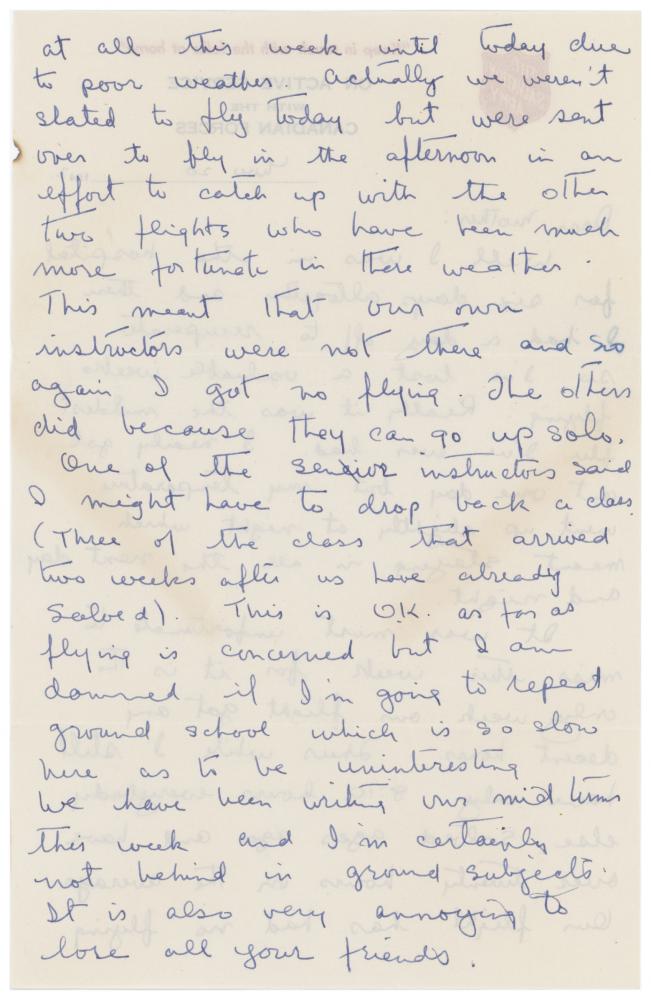 at all this week until today due
to poor weather. Actually we weren't
slated to fly today but were sent
over to fly in the afternoon in an
effort to catch up with the other
two flights who have been much
more fortunate in there weather.
This meant that our own
instructors were not there and so
again I got no flying. The others
did because they can go up solo.
One of the senior instructors said
I might have to drop back a class
(Three of the class that arrived
two weeks after us have already
soloed). This is O.K. as far as
flying is concerned but I am
damned if I'm going to repeat
ground school which is so slow
here as to be uninteresting
We have been writing our mid terms
this week and I'm certainly
not behind in ground subjects.
It is also very annoying to
lose all your friends.